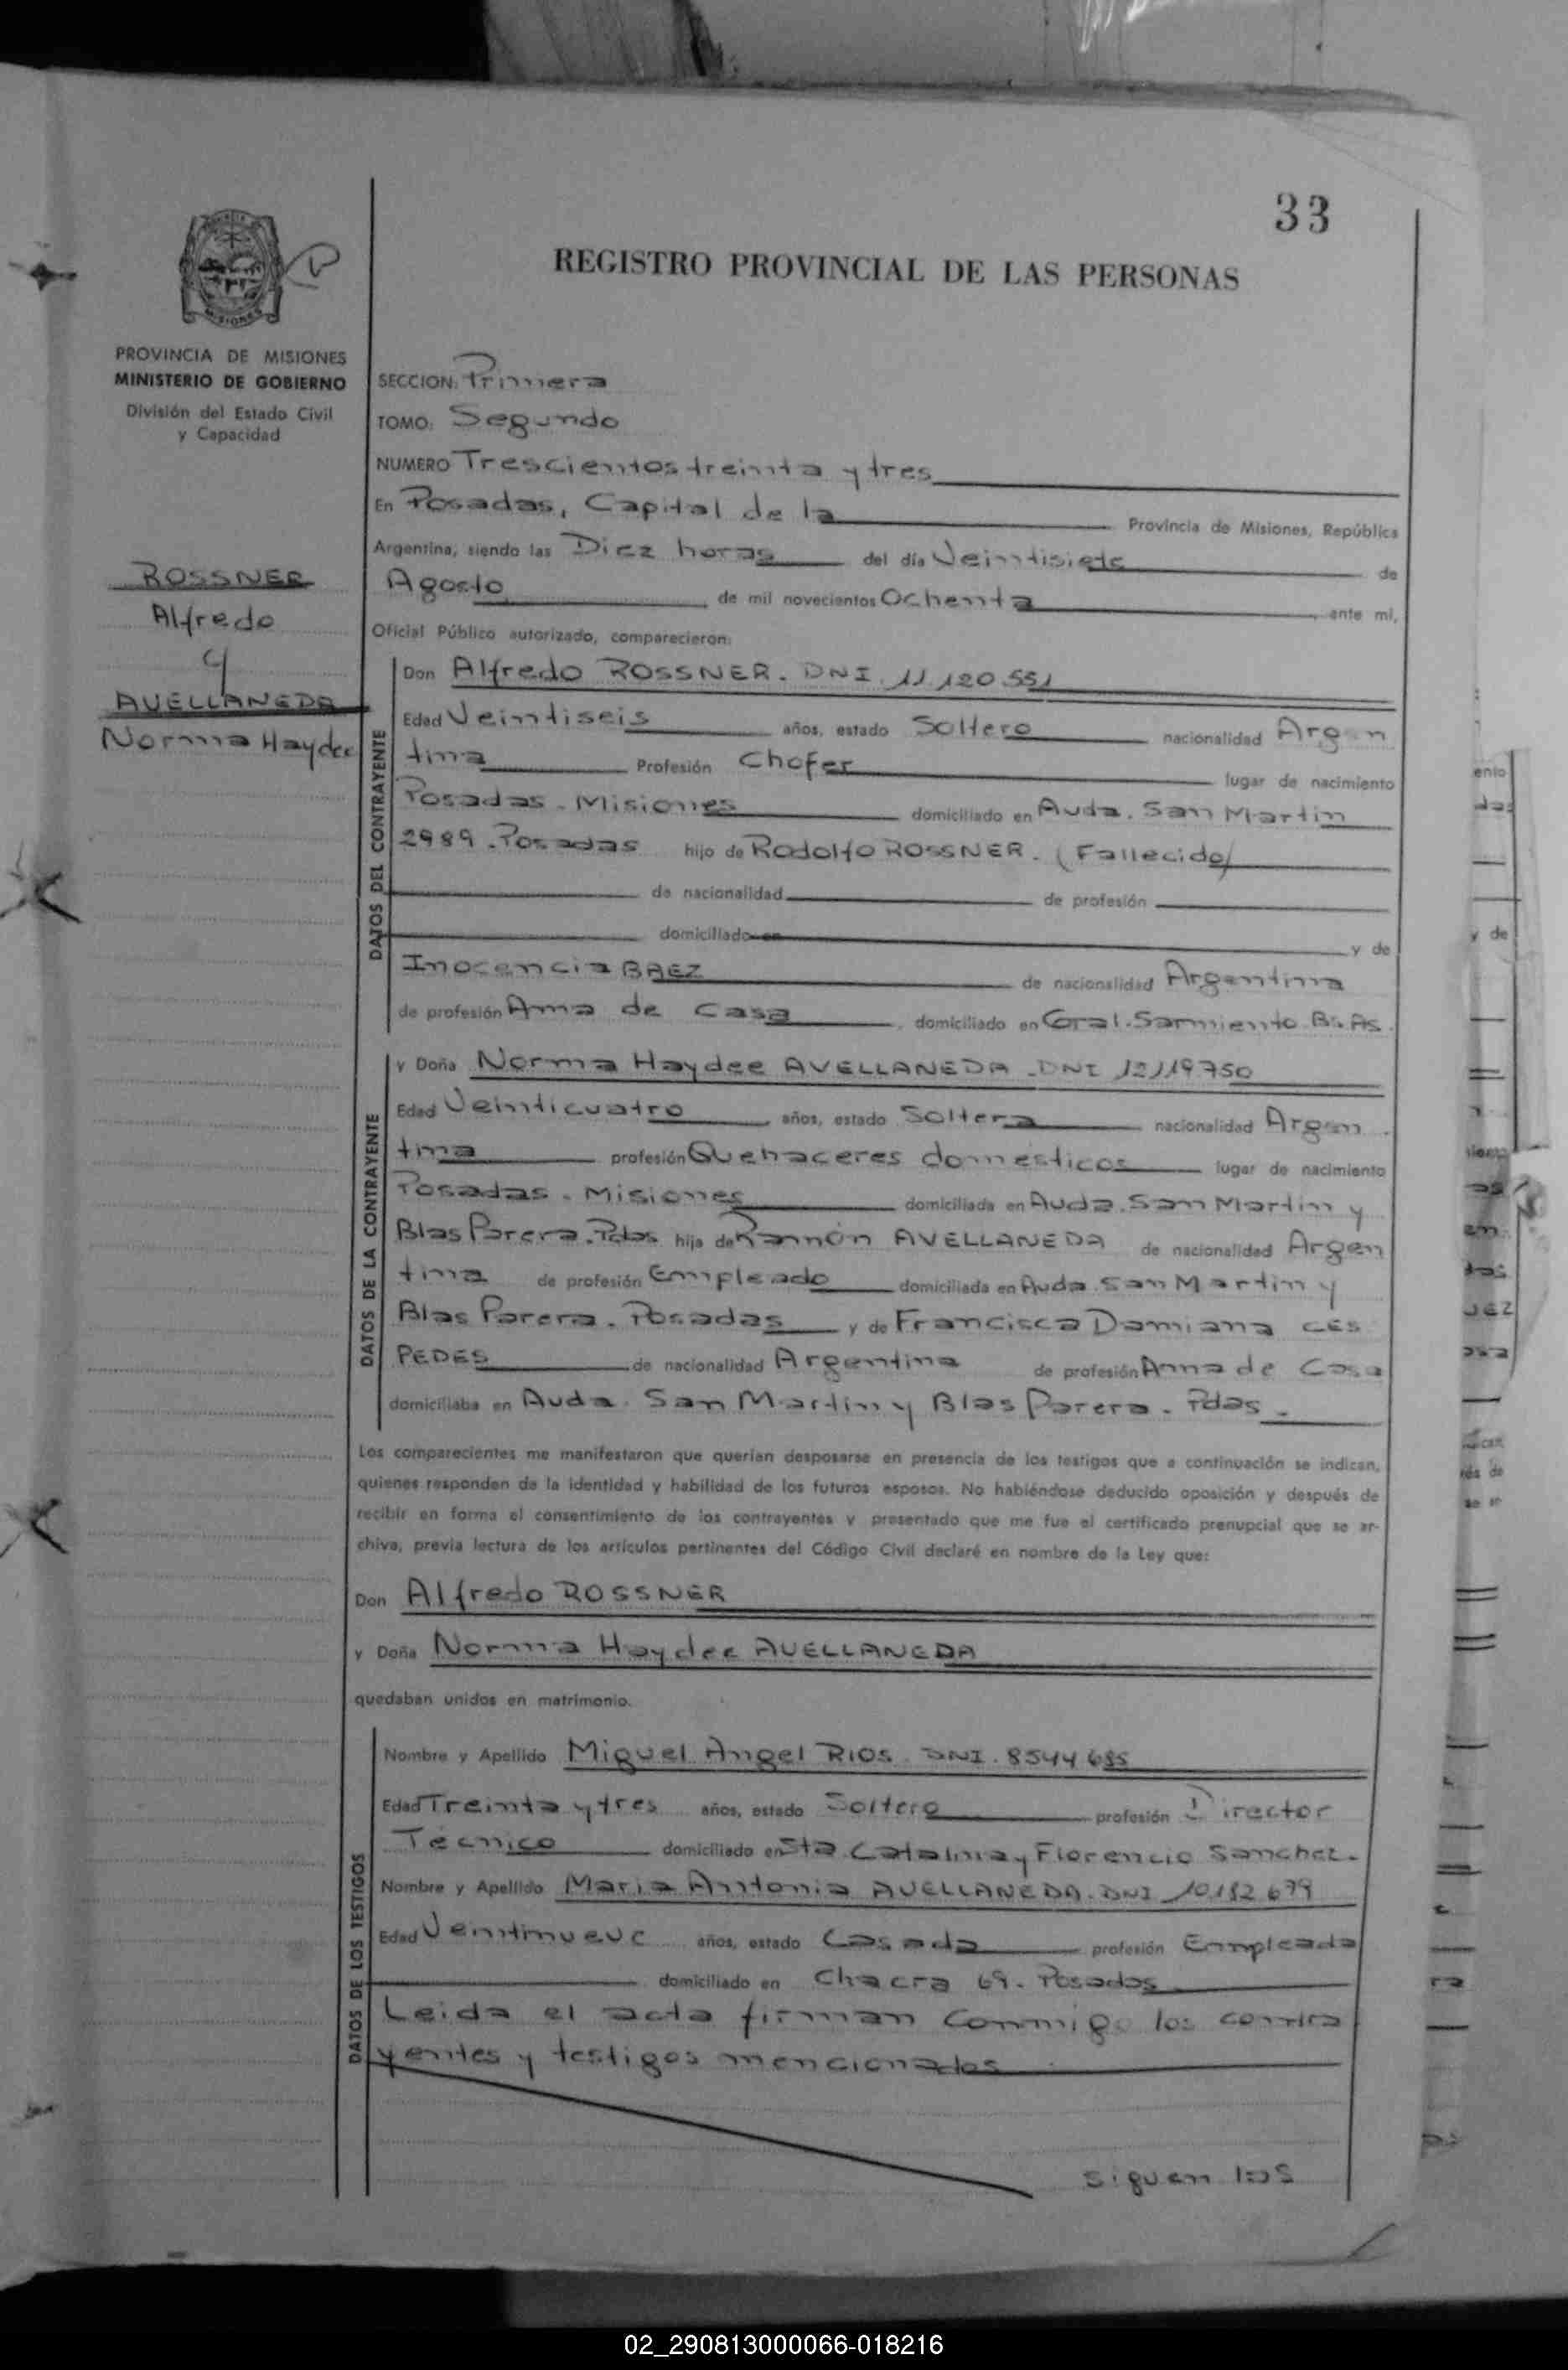 33
REGISTRO PROVINCIAL DE LAS PERSONAS
MISIONES
PROVINCIA DE MISIONES
MINISTERIO DE GOBIERNO
División del Estado Civil
y Capacidad
ROSSNER
Alfredo
y
AVELLANEDA
Norma Haydee
SECCION: Primera
TOMO: Segundo
NUMERO Trescientos treinta y tres
En Posadas, Capital de la Provincia de Misiones, República
Argentina, siendo las Diez horas del día Veintisiete de
Agosto de mil novecientos Ochenta ante mí,
Oficial Público autorizado, comparecieron:
DATOS DEL CONTRAYENTE
Don Alfredo ROSSNER. DNI. 11.120.551
Edad Veintiseis años, estado Soltero nacionalidad Argen
tina Profesión Chofer lugar de nacimiento
Posadas - Misiones domiciliado en Avda. San Martin
2989. Posadas hijo de Rodolfo ROSSNER. (Fallecido)
de nacionalidad de profesión
domiciliado en y de
Inocencia BAEZ de nacionalidad Argentina
de profesión Ama de Casa, domiciliado en Gral. Sarmiento Bs. As.
DATOS DE LA CONTRAYENTE
y Doña Norma Haydee AVELLANEDA - DNI 12119750
Edad Veinticuatro años, estado Soltera nacionalidad Argen
tina profesión Quehaceres domesticos lugar de nacimiento
Posadas - Misiones domiciliada en Avda. San Martin y
Blas Parera. Pdas hija de Ramón AVELLANEDA de nacionalidad Argen
tina de profesión Empleado domiciliada en Avda. San Martin y
Blas Parera. Posadas y de Francisca Damiana CES
PEDES de nacionalidad Argentina de profesión Ama de Casa
domiciliaba en Avda. San Martin y Blas Parera - Pdas.
Los comparecientes me manifestaron que querían desposarse en presencia de los testigos que a continuación se indican,
quienes responden de la identidad y habilidad de los futuros esposos. No habiéndose deducido oposición y después de
recibir en forma el consentimiento de los contrayentes y presentado que me fue el certificado prenupcial que se ar-
chiva, previa lectura de los artículos pertinentes del Código Civil declaré en nombre de la Ley que:
Don Alfredo ROSSNER
y Doña Norma Haydee AVELLANEDA
quedaban unidos en matrimonio.
DATOS DE LOS TESTIGOS
Nombre y Apellido Miguel Angel RIOS. DNI. 8544685
Edad Treinta y tres años, estado Soltero profesión Director
Tecnico domiciliado en Sta Catalina y Florencio Sanchez.
Nombre y Apellido Maria Antonia AVELLANEDA. DNI 10.182.679
Edad Veintinueve años, estado Casada profesión Empleada
domiciliado en Chacra 69. Posadas
Leida el acta firman conmigo los contra
yentes y testigos mencionados
siguen los
02_290813000066-018216